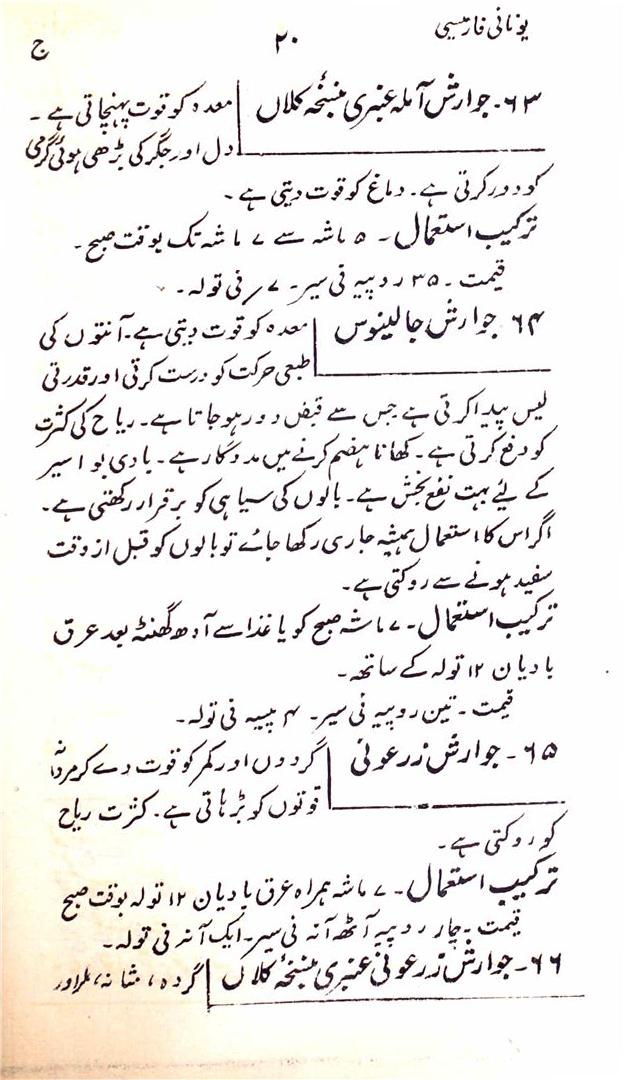 یونانی فارمیسی
۲۰
ج
۶۳۔ جوارش آملہ عنبری بنسخۂ کلاں
معدہ کو قوت پہنچاتی ہے۔
دل اور جگر کی بڑھی ہوئی گرمی
کو دور کرتی ہے۔ دماغ کو قوت دیتی ہے۔
ترکیب استعمال۔ ۵ ماشہ سے ۷ ماشہ تک بوقت صبح۔
قیمت۔ ۳۵ روپیہ فی سیر۔ ۷؍ فی تولہ۔
۶۴۔ جوارش جالینوس
معدہ کو قوت دیتی ہے۔ آنتوں کی
طبعی حرکت کو درست کرتی اور قدرتی
لیس پیدا کرتی ہے جس سے قبض دور ہو جاتا ہے۔ ریاح کی کثرت
کو دفع کرتی ہے۔ کھانا ہضم کرنے میں مددگار ہے۔ بادی بواسیر
کے لیے بہت نفع بخش ہے۔ بالوں کی سیاہی کو برقرار رکھتی ہے۔
اگر اس کا استعمال ہمیشہ جاری رکھا جائے تو بالوں کو قبل از وقت
سفید ہونے سے روکتی ہے۔
ترکیب استعمال۔ ۷ ماشہ صبح کو یا غذا سے آدھ گھنٹہ بعد عرق
بادیان ۱۲ تولہ کے ساتھ۔
قیمت۔ تین روپیہ فی سیر۔ ۴ پیسہ فی تولہ۔
۶۵۔ جوارش زرعونی
گردوں اور کمر کو قوت دے کر مردانہ
قوتوں کو بڑہاتی ہے۔ کثرت ریاح
کو روکتی ہے۔
ترکیب استعمال۔ ۷ ماشہ ہمراہ عرق بادیان ۱۲ تولہ بوقت صبح
قیمت۔ چار روپیہ آٹھ آنہ فی سیر۔ ایک آنہ فی تولہ۔
۶۶۔ جوارش زرعونی عنبری بنسخۂ کلاں
گردہ، مثانہ،